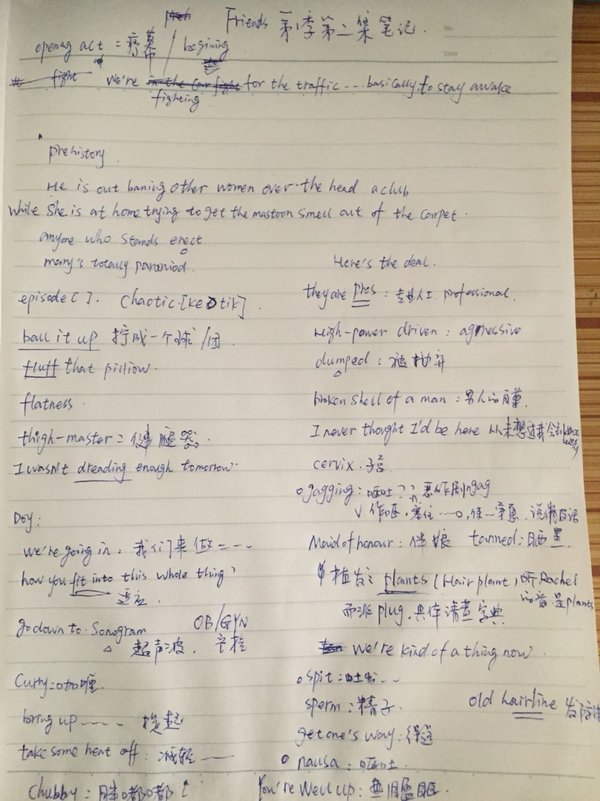 Friends 第1季第二集笔记.
opening act = 序幕 / begining
We're fighting for the traffic --- basically to stay awake
prehistory
He is out baning other women over the head a club
while she is at home trying to get the mastoon smell out of the carpet.
anyone who stands erect
mony's totally paranoid.
episode [ ]. Chaotic. [keɔtik]
ball it up 拧成一个球/团
fluff that pilliow.
flatness.
thigh-master = 健腿器.
I wasn't dreading enough tomorrow.
Dry:
we're going in : 我们来做 ---
how you fit into this whole thing?
适应
go down to sonogram OB/GYN
超声波. 产检
Curry : 咖喱
bring up ---- 提起
take some heat off : 减轻 ---
Chubby : 胖嘟嘟
Here's the deal.
they are pros : 专业人士. professional.
High-power driven : aggressive
dumped : 被抛弃
broken shell of a man : 男人的
I never thought I'd be here 从未想过我会
cervix : 子宫
gagging : 呕吐 ?? 恶作剧gag
作呕, 塞住
Maid of honour : 伴娘 tanned : 晒黑
植发 : plants (Hair plant) 听Rachel
的音是plants
而非plug, 具体请查字典
We're kind of a thing now.
spit : 吐出 --
sperm : 精子
old hairline
get one's way : 得逞
nausa : 呕吐
You're well up : 热泪盈眶